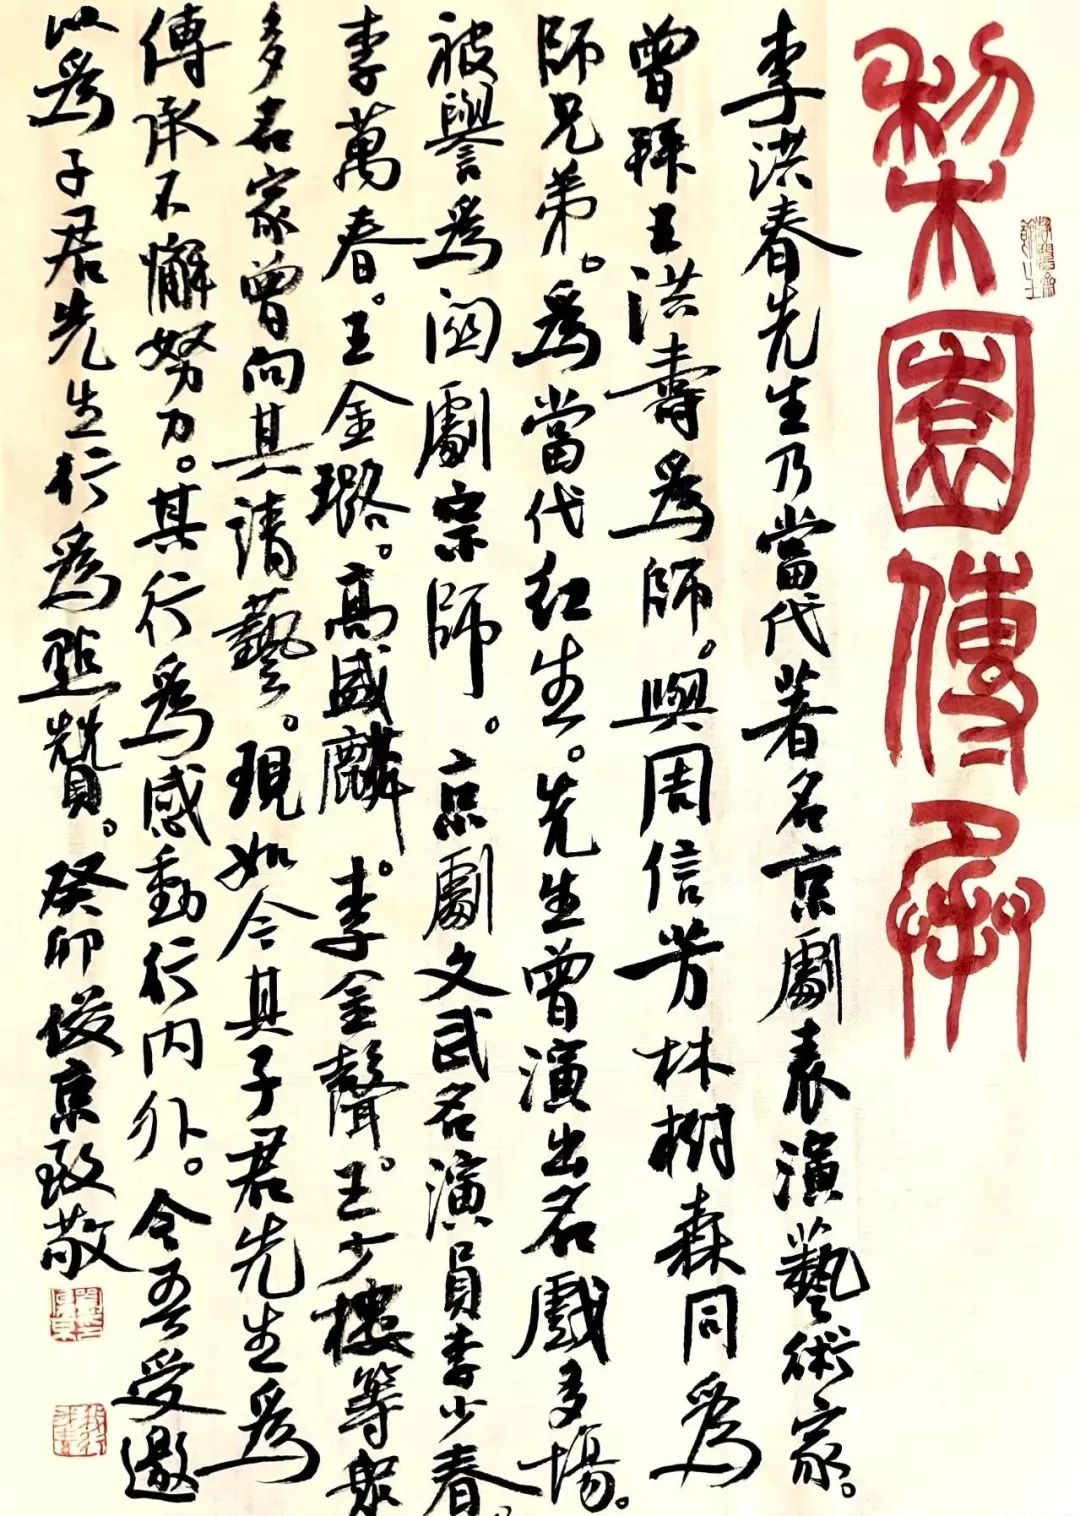 梨園傳承
李洪春先生乃當代著名京劇表演藝術家。
曾拜王洪壽為師。與周信芳林樹森同為
師兄弟。為當代红生。先生曾演出名戲多場。
被譽為關劇宗師。京劇文武名演員李少春。
李萬春。王金璐。高盛麟。李金聲。王少樓等眾
多名家曾向其請藝。現如今其子君先生為
傳承不懈努力。其行為感動行内外。令吾受邀
以為子君先生行為點贊。癸卯俊京敬